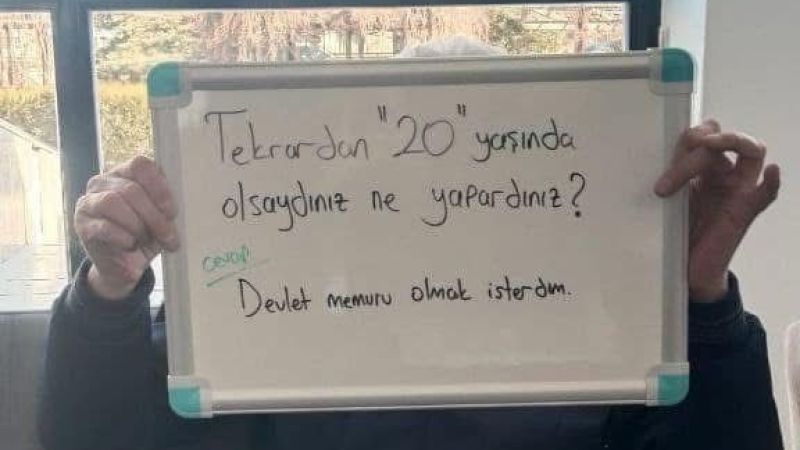 Tekrardan "20" yaşında
olsaydınız ne yapardınız?
cevap
Devlet memuru olmak isterdim.